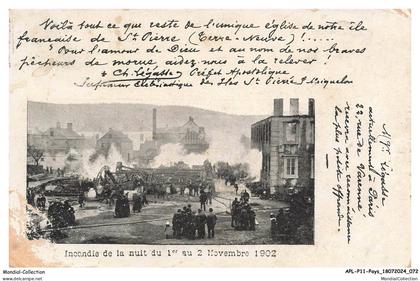 Voilà tout ce que reste de l'unique église de notre île
française de St Pierre (Terre-Neuve) !.....
"Pour l'amour de Dieu et au nom de nos braves
pêcheurs de morue aidez-nous à la relever !
+ Ch. Légasse, Préfet Apostolique
Supérieur Ecclésiastique des Iles St Pierre & Miquelon
Mgr Légasse
actuellement à Paris
22 rue de Varenne
recevra avec reconnaissance
la plus petite offrande.
Incendie de la nuit du 1er au 2 Novembre 1902
Mondial-Collection.com
APL-P11-Pays_18072024_072
MondialCollection.com